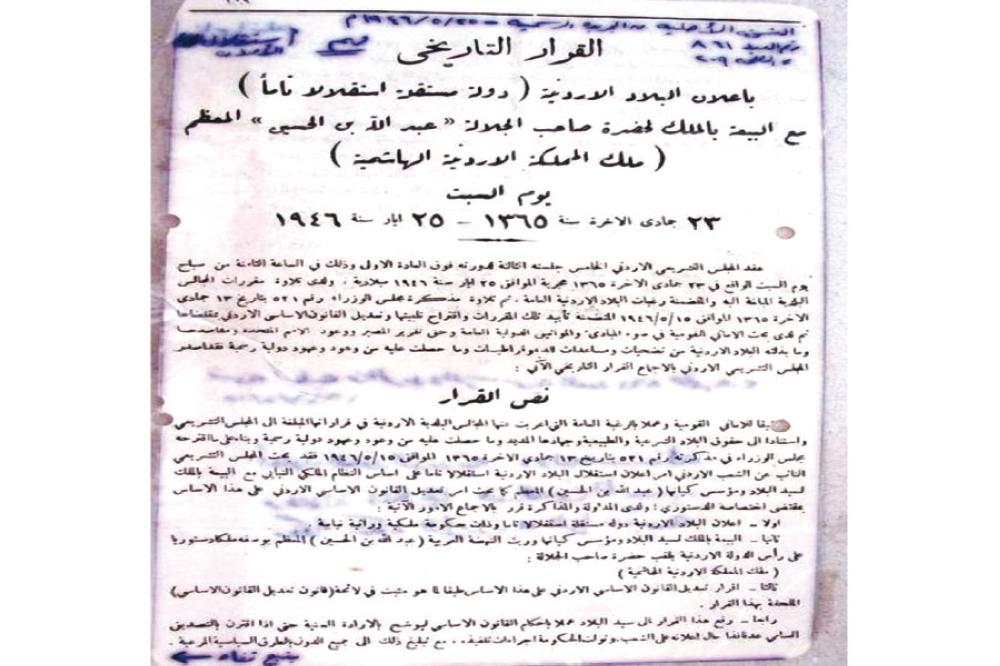 النسخة الأصلية من الجريدة الرسمية - ١٩٤٦/٥/٢٥م
رقم العدد ٨٦١
استقلال
القرار التاريخي
باعلان البلاد الاردنية ( دولة مستقلة استقلالا تاماً )
مع البيعة بالملك لحضرة صاحب الجلالة « عبد الله بن الحسين » المعظم
( ملك المملكة الاردنية الهاشمية )
يوم السبت
٢٣ جمادى الاخرة سنة ١٣٦٥ - ٢٥ ايار سنة ١٩٤٦
عقد المجلس التشريعي الاردني الخامس جلسته الثالثة لدورته فوق العادة الاولى وذلك في الساعة الثامنة من صباح
يوم السبت الواقع في ٢٣ جمادى الاخرة ١٣٦٥ هجرية الموافق ٢٥ ايار سنة ١٩٤٦ ميلادية ، ولدى تلاوة مقررات المجالس
البلدية المبلغة اليه والمتضمنة رغبات البلاد الاردنية العامة . ثم تلاوة مذكرة مجلس الوزراء رقم ٥٢١ بتاريخ ١٣ جمادى
الاخرة ١٣٦٥ الموافق ١٩٤٦/٥/١٥ المتضمنة تأييد تلك المقررات واقتراح تلبيتها وتعديل القانون الاساسي الاردني بمقتضاها
ثم لدى بحث الاماني القومية في ضوء المبادئ والمواثيق الدولية العامة وحق تقرير المصير ووعود الامم المتحدة ومقاصدها
وما بذلته البلاد الاردنية من تضحيات ومساعدات للديموقراطيات وما حصلت عليه من وعود وعهود دولية رسمية فقد اصدر
المجلس التشريعي الاردني بالاجماع القرار التاريخي الآتي :
نص القرار
للاماني القومية وعملا بالرغبة العامة التي اعربت عنها المجالس البلدية الاردنية في قراراتها المبلغة الى المجلس التشريعي
واستنادا الى حقوق البلاد الشرعية والطبيعية وجهادها المديد وما حصلت عليه من وعود وعهود دولية رسمية وبناء على ما اقترحه
مجلس الوزراء في مذكرته رقم ٥٢١ بتاريخ ١٣ جمادى الاخرة ١٣٦٥ الموافق ١٩٤٦/٥/١٥ فقد بحث المجلس التشريعي
النائب عن الشعب الاردني امر اعلان استقلال البلاد الاردنية استقلالا تاما على اساس النظام الملكي النيابي مع البيعة بالملك
لسيد البلاد ومؤسس كيانها ( عبد الله بن الحسين ) المعظم كما بحث امر تعديل القانون الاساسي الاردني على هذا الاساس
بمقتضى اختصاصه الدستوري ؛ ولدى المداولة والمذاكرة قرر بالاجماع الامور الآتية :
اولا - اعلان البلاد الاردنية دولة مستقلة استقلالا تاما وذات حكومة ملكية وراثية نيابية
ثانيا - البيعة بالملك لسيد البلاد ومؤسس كيانها وريث النهضة العربية ( عبد الله بن الحسين ) المعظم بوصفه ملكا دستوريا
على رأس الدولة الاردنية بلقب حضرة صاحب الجلالة :
( ملك المملكة الاردنية الهاشمية )
ثالثا - اقرار تعديل القانون الاساسي الاردني على هذا الاساس طبقا لما هو مثبت في لائحة (قانون تعديل القانون الاساسي)
الملحقة بهذا القرار .
رابعا - رفع هذا القرار الى سيد البلاد عملا باحكام القانون الاساسي ليوشح بالارادة السنية حتى اذا اقترن بالتصديق
السامي عد نافذا حال اعلانه على الشعب وتولت الحكومة اجراءات تنفيذه . مع تبليغ ذلك الى جميع الدول بالطرق السياسية المرعية .
يتبع